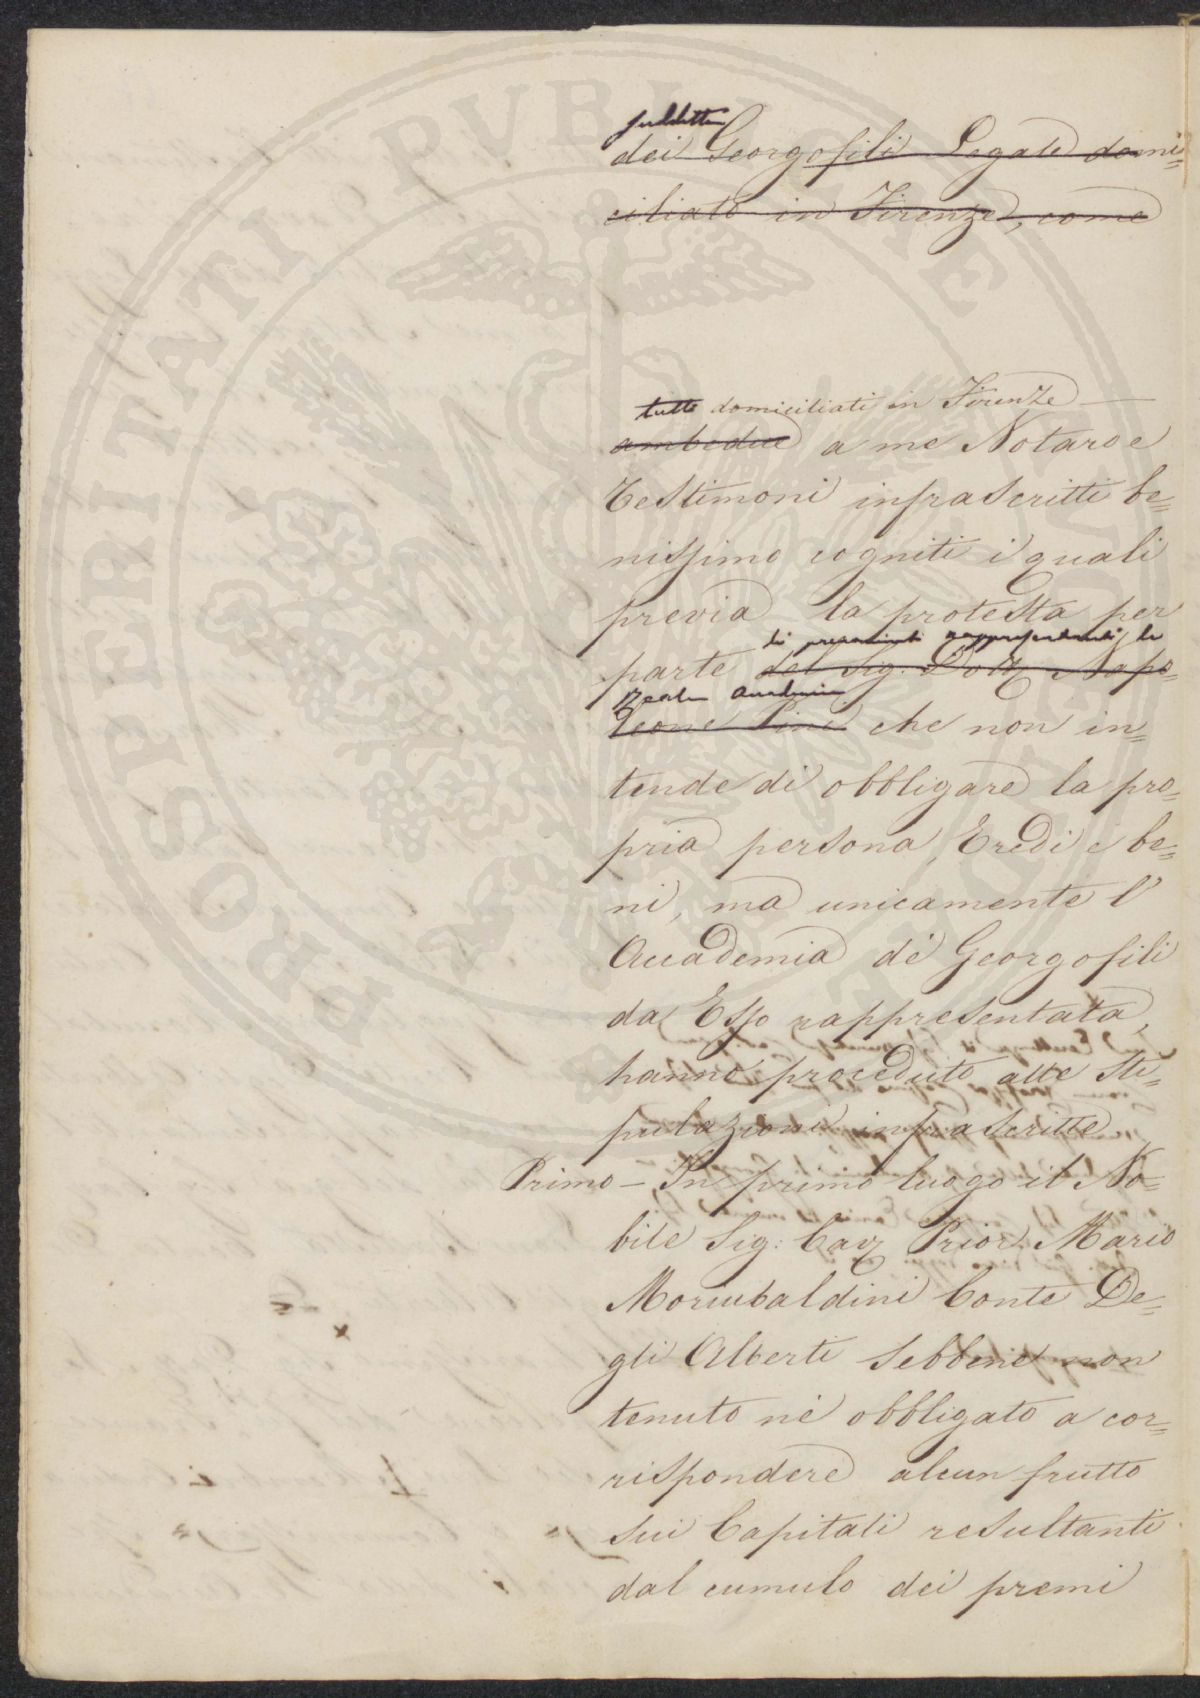 suddetta
dei Georgofili Legale domi=
ciliato in Firenze, come
tutti domiciliati in Firenze
ambedue a me Notaro e
Testimoni infrascritti be=
nissimo cogniti i quali
previa la protesta per
li rappresentanti la
parte del Sig. Dott. Napo=
Reale Accademia
leone Pini che non in=
tende di obbligare la pro=
pria persona, Eredi e be=
ni, ma unicamente l'
Accademia dei Georgofili
da Esso rappresentata,
hanno proceduto alle sti=
pulazioni infrascritte
Primo - In primo luogo il No=
bile Sig: Cav Prior Mario
Morubaldini Conte De=
gli Alberti sebbene non
tenuto né obbligato a cor=
rispondere alcun frutto
sui Capitali resultanti
dal cumulo dei premi
PROSPERITATI PUBLICAE